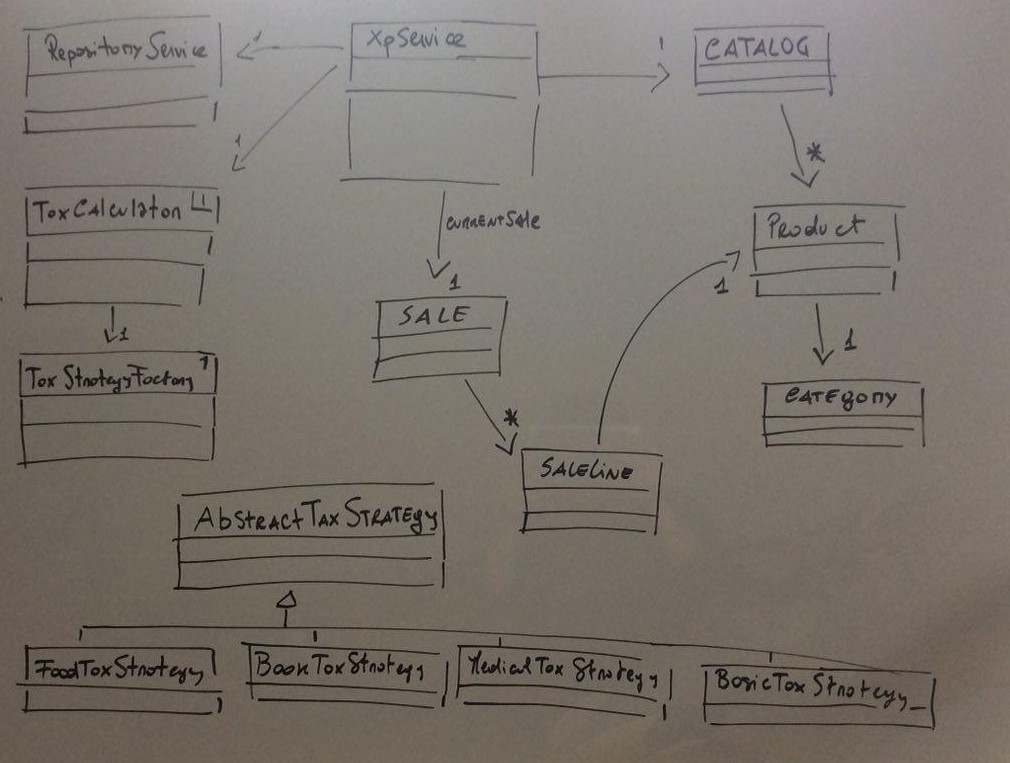 RepositoryService
1
XpService
1
CATALOG
1
*
TaxCalculator 1
currentSale
Product
1
SALE
1
1
1
TaxStrategyFactory 1
*
CATEGORY
SALELINE
AbstractTaxStrategy
FoodTaxStrategy
BookTaxStrategy
MedicalTaxStrategy
BasicTaxStrategy